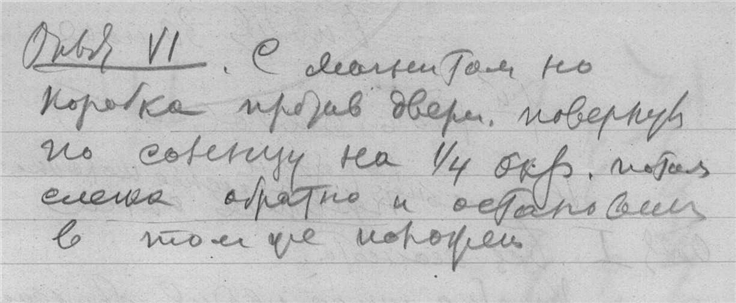 Опыт VI. С магнитом но
коробка против двери. повернув
по солнцу на 1/4 окр. потом
слегка обратно и остановил
в том же